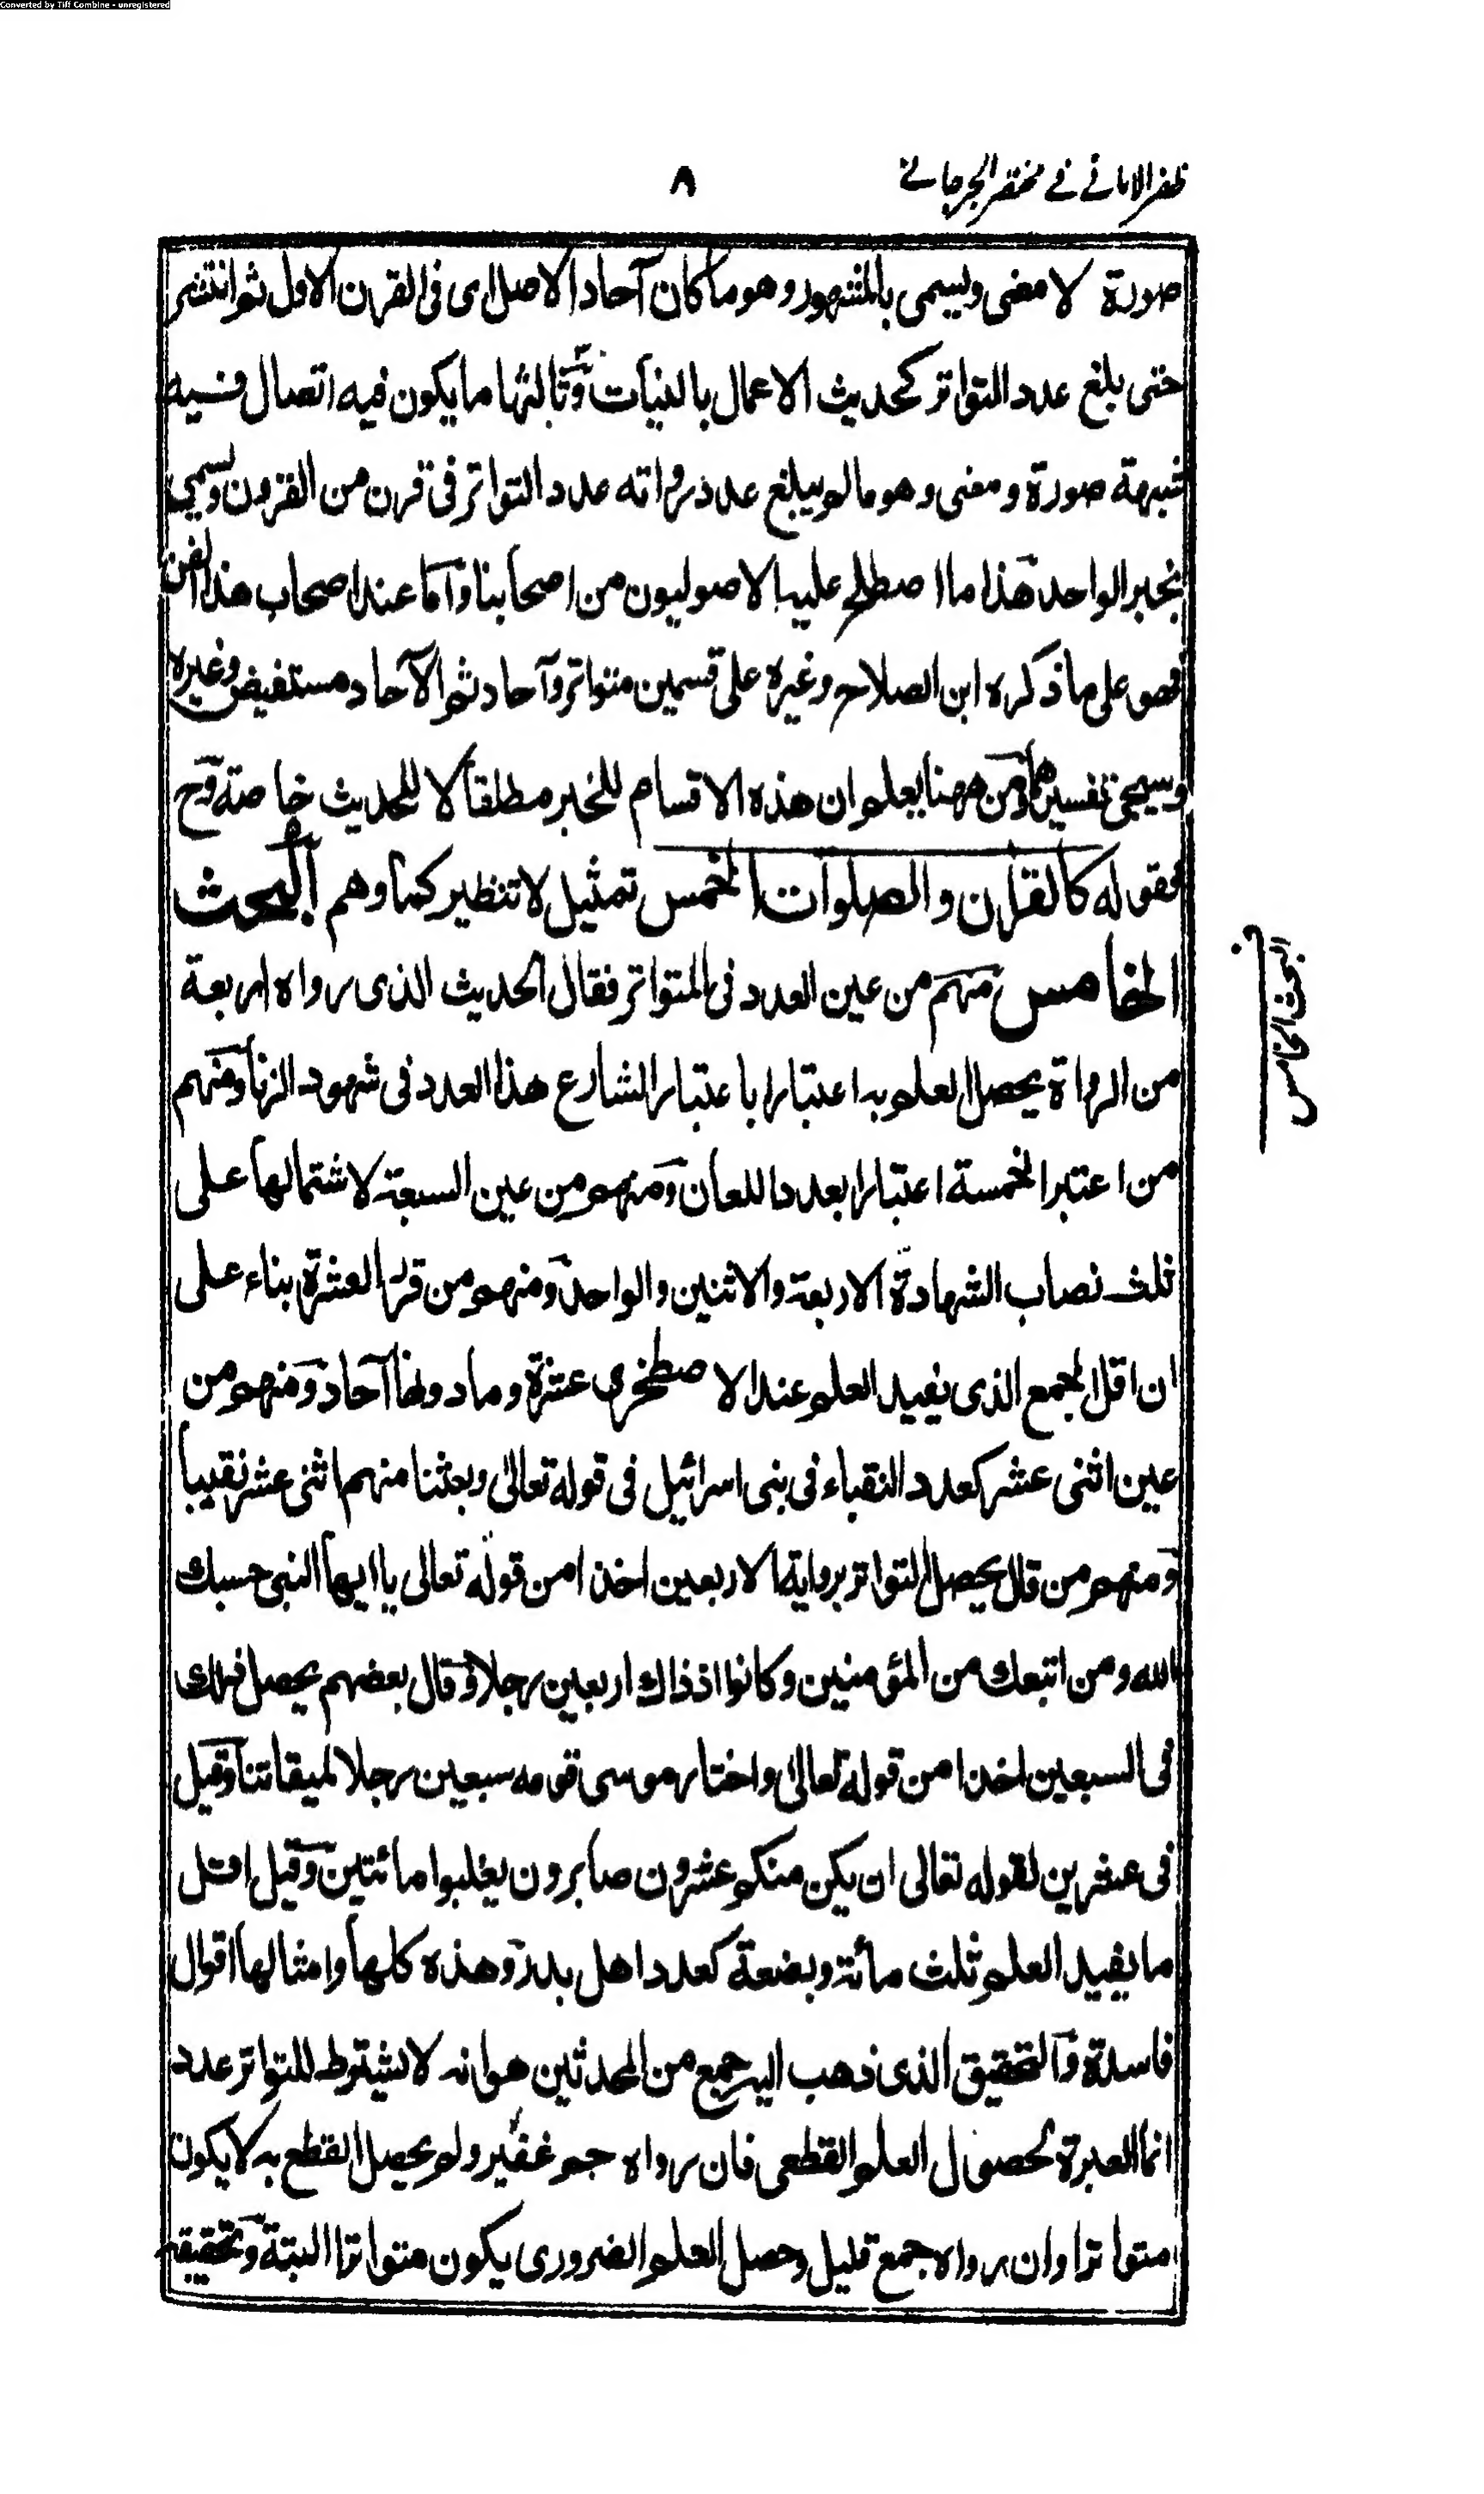 Converted by Tiff Combine - unregistered
ظفر الامانی فی مختصر الجرجانی
٨
صورة لا معنی ویسمی بالمشهور وهو ما کان آحاد الاصل ای فی القرن الاول ثم انتشر
حتی بلغ عدد التواتر کحدیث الاعمال بالنیات وثالثها ما یکون فیه اتصال فیه
شبهة صورة ومعنی وهو ما لم یبلغ عدد رواته عدد التواتر فی قرن من القرون ویسمی
بخبر الواحد هذا ما اصطلح علیه الاصولیون من اصحابنا واما عند اصحاب هذا الفن
فهو علی ما ذکره ابن الصلاح وغیره علی قسمین متواتر وآحاد ثم الآحاد مستفیض وغیره
وسیجیٔ تفسیرهما ومن ههنا یعلم ان هذه الاقسام للخبر مطلقا لا للحدیث خاصة وح
فقوله کالقران والصلوات الخمس تمثیل لا تنظیر کما وهم البحث
الخامس منهم من عین العدد فی المتواتر فقال الحدیث الذی رواه اربعة
البحث الخامس
من الرواة یحصل العلم به اعتبارا باعتبار الشارع هذا العدد فی شهود الزنا ومنهم
من اعتبر الخمسة اعتبارا بعدد اللعان ومنهم من عین السبعة لاشتمالها علی
ثلث نصاب الشهادة الاربعة والاثنین والواحد ومنهم من قرر العشرة بناء علی
ان اقل الجمع الذی یفید العلم عند الاصطخری عشرة وما دونها آحاد ومنهم من
عین اثنی عشر کعدد النقباء فی بنی اسرائیل فی قوله تعالی وبعثنا منهم اثنی عشر نقیبا
ومنهم من قال یحصل التواتر بروایة الاربعین اخذا من قوله تعالی یا ایها النبی حسبك
الله ومن اتبعك من المؤمنین وکانوا اذ ذاك اربعین رجلا وقال بعضهم یحصل ذلك
فی السبعین اخذا من قوله تعالی واختار موسی قومه سبعین رجلا لمیقاتنا وقیل
فی عشرین لقوله تعالی ان یکن منکم عشرون صابرون یغلبوا مائتین وقیل اقل
ما یفید العلم ثلث مائة وبضعة کعدد اهل بدر وهذه کلها وامثالها اقوال
فاسدة والتحقیق الذی ذهب الیه جمع من المحدثین هو انه لا یشترط للتواتر عدد
انما العبرة لحصول العلم القطعی فان رواه جم غفیر ولم یحصل القطع به لا یکون
متواترا وان رواه جمع قلیل وحصل العلم الضروری یکون متواترا البتة وتحقیقه